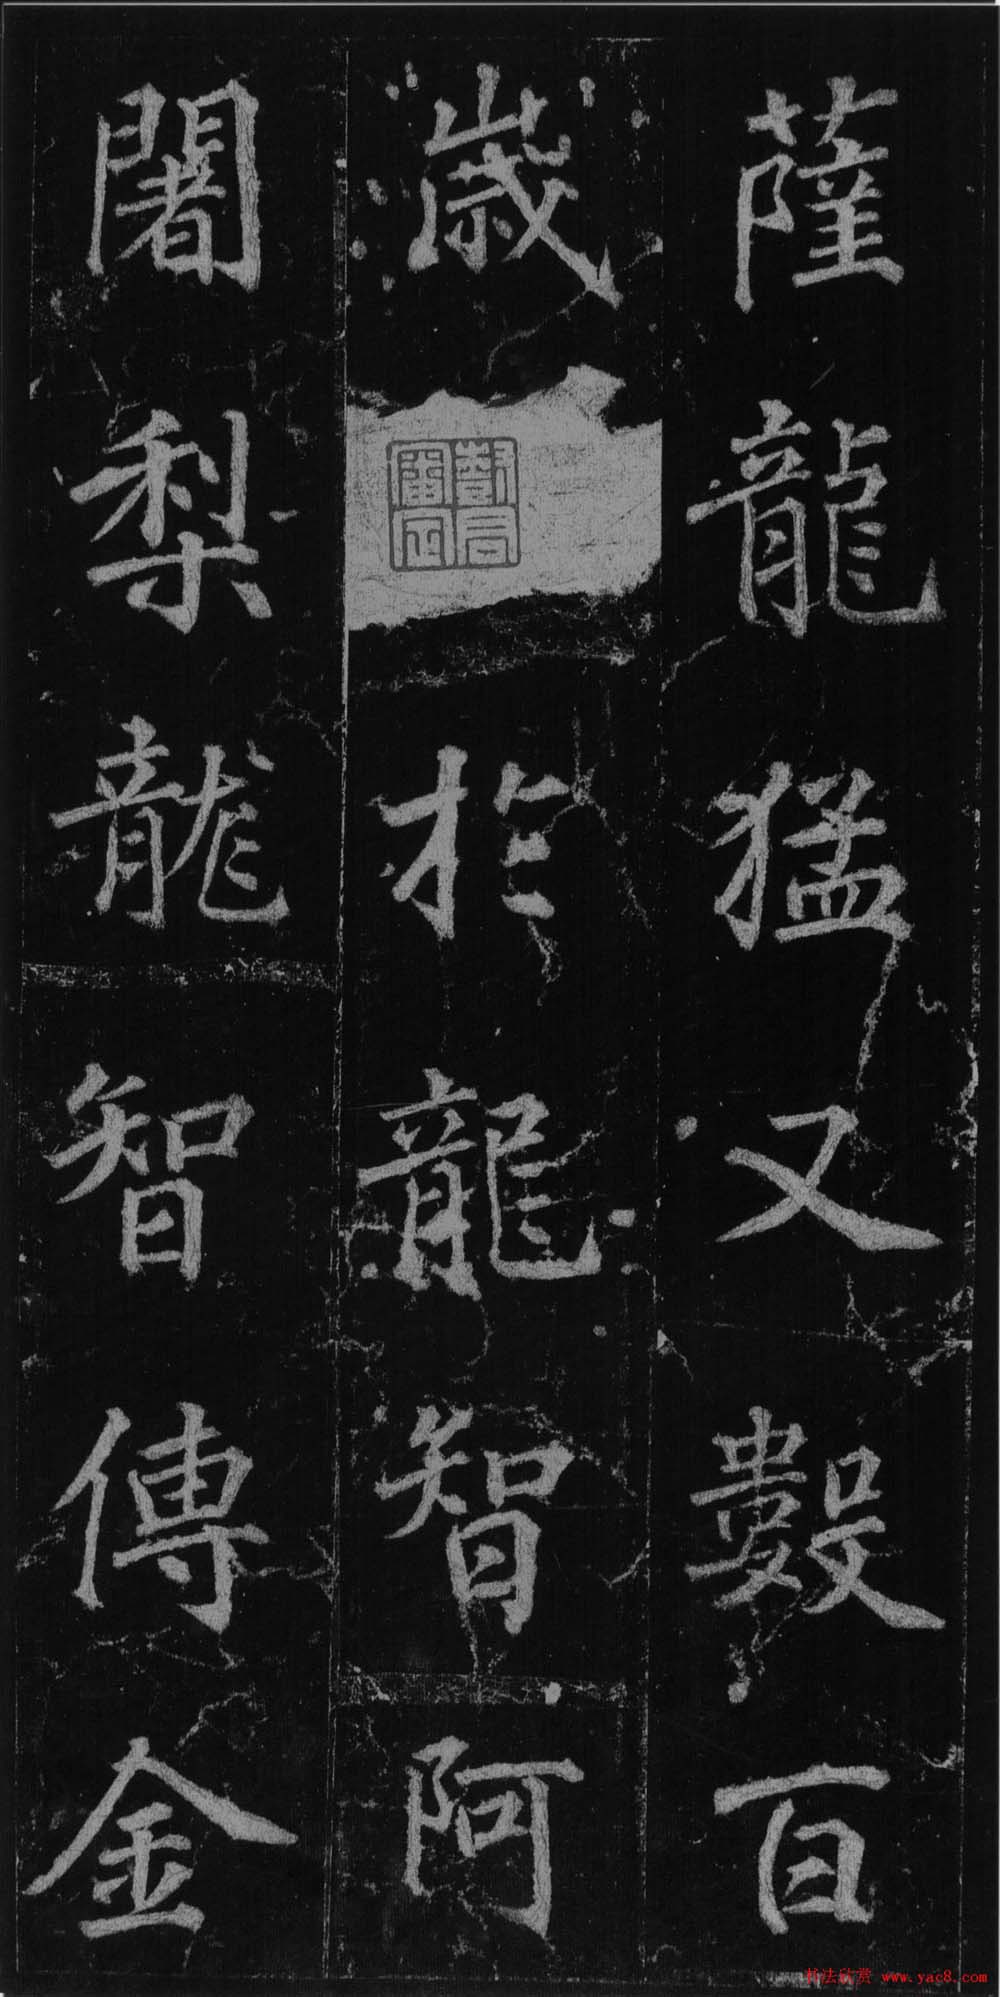 薩龍猛又數百
歲於龍智阿
闍梨龍智傳金
书法欣赏 www.yac8.com